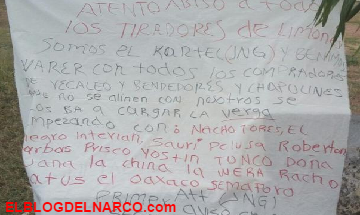 ATENTO AVISO a TODO
LOS TIRADORES de LIMON
SOMOS EL KARTEL (JNG) Y EL
VARER CON TODOS LOS COMPRADORES
YECALEO Y BENDEDORES Y CHAPOLINES
que no se alinen con nosotros se
los BA a CARGAR LA verga
mpezando con: NACHO TORES, EL
negro interian, Sauri Pelusa Roberton
arbas Prisco Yostin TUNCO DOÑA
uana la china la WERA Racho
atus el oaxaco semaforo
ELBLOGDELNARCO.COM